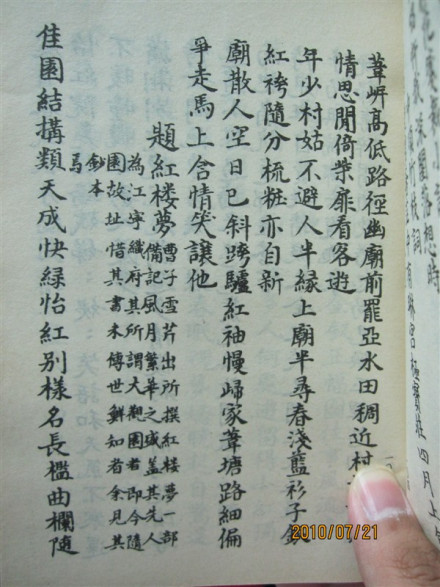 葦岍高低路徑幽廟前罷亞水田稠近村
情思閒倚柴扉看客遊
年少村姑不避人半緣上廟半尋春淺藍衫子
紅袴隨分梳粧亦自新
廟散人空日已斜跨驢紅袖慢歸家葦塘路細偏
爭走馬上含情笑讓他
題紅楼夢
曹子雪芹出所撰紅楼夢一部
備記風月繁華之盛蓋其先人
為江寧織府其所謂大觀園者即今隨
園故址惜其書未傳世鮮知者余見其
鈔本
焉
佳園結搆類天成快綠怡紅别樣名長檻曲欄隨
2010/07/21